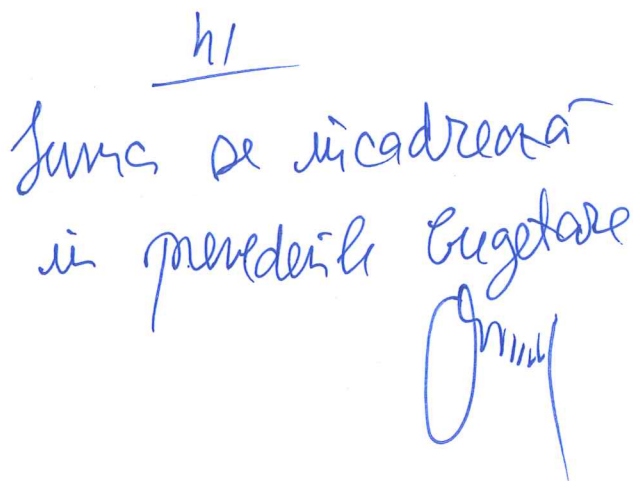 Suma se încadrează
în prevederile bugetare